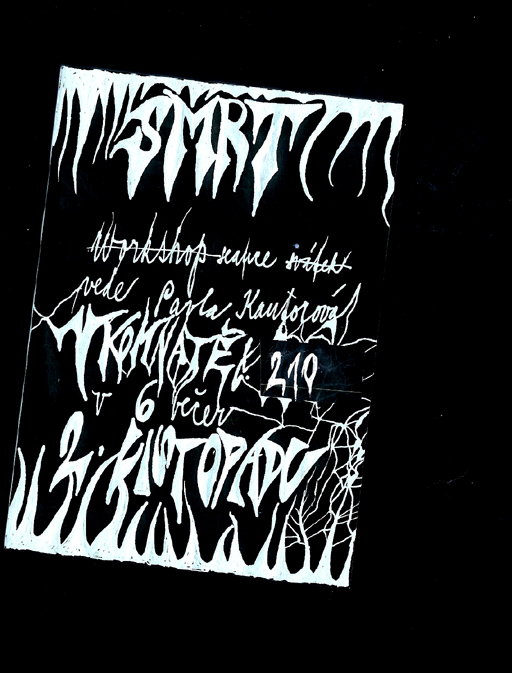 SMRT
Workshop seance svátek
vede Pavla Kantorová
V KOMNATĚ č. 210
v 6 večer
2. LISTOPADU